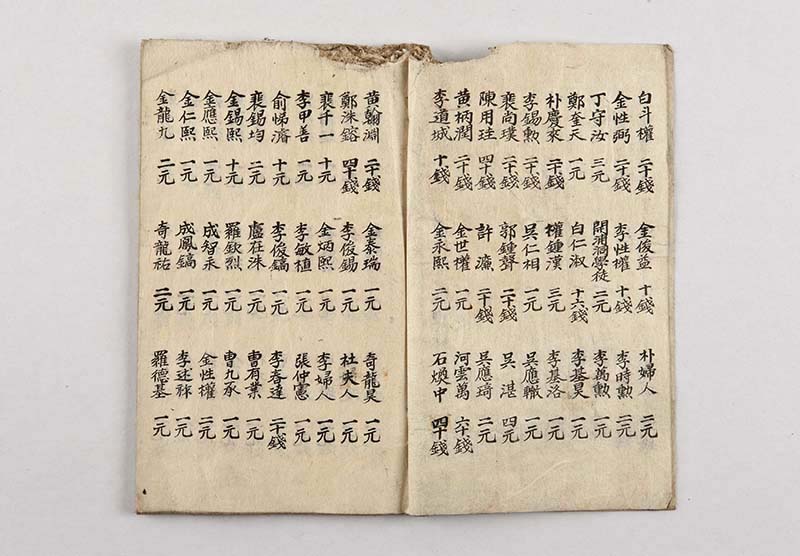 白斗權 二十錢
金性弼 二十錢
丁守汝 三元
鄭奎天 一元
朴慶來 二十錢
李錫勲 二十錢
裵尚璞 二十錢
陳用珪 四十錢
黃柄潤 二十錢
李道城 十錢
金俊益 十錢
李性權 十錢
開浦洞學徒 二元
白仁淑 十六錢
權鍾漢 三元
吳仁相 一元
郭鍾聲 二十錢
許濂 二十錢
金世權 一元
金永熙 二元
朴婦人 二元
李時勲 一元
李萬勲 一元
李基昊 一元
李基洛 一元
吳應轍 一元
吳湛 四元
吳應琦 二元
河雲萬 六十錢
石煥中 四十錢
黃翰淵 二十錢
鄭洙鎔 四十錢
裵千一 十元
李甲善 一元
俞悌濬 十元
裵錫均 二元
金錫熙 十元
金應熙 一元
金仁熙 一元
金龍九 二元
金泰瑞 一元
李俊錫 一元
金炳熙 一元
李敏植 一元
李俊鎬 一元
盧在洙 一元
羅欽烈 一元
成智永 一元
成鳳鎬 一元
奇龍祐 二元
奇龍昊 一元
杜夫人 一元
李婦人 一元
張仲憲 一元
李春達 二十錢
曺有業 一元
曺九承 一元
金性權 二元
李 一元
羅德基 一元